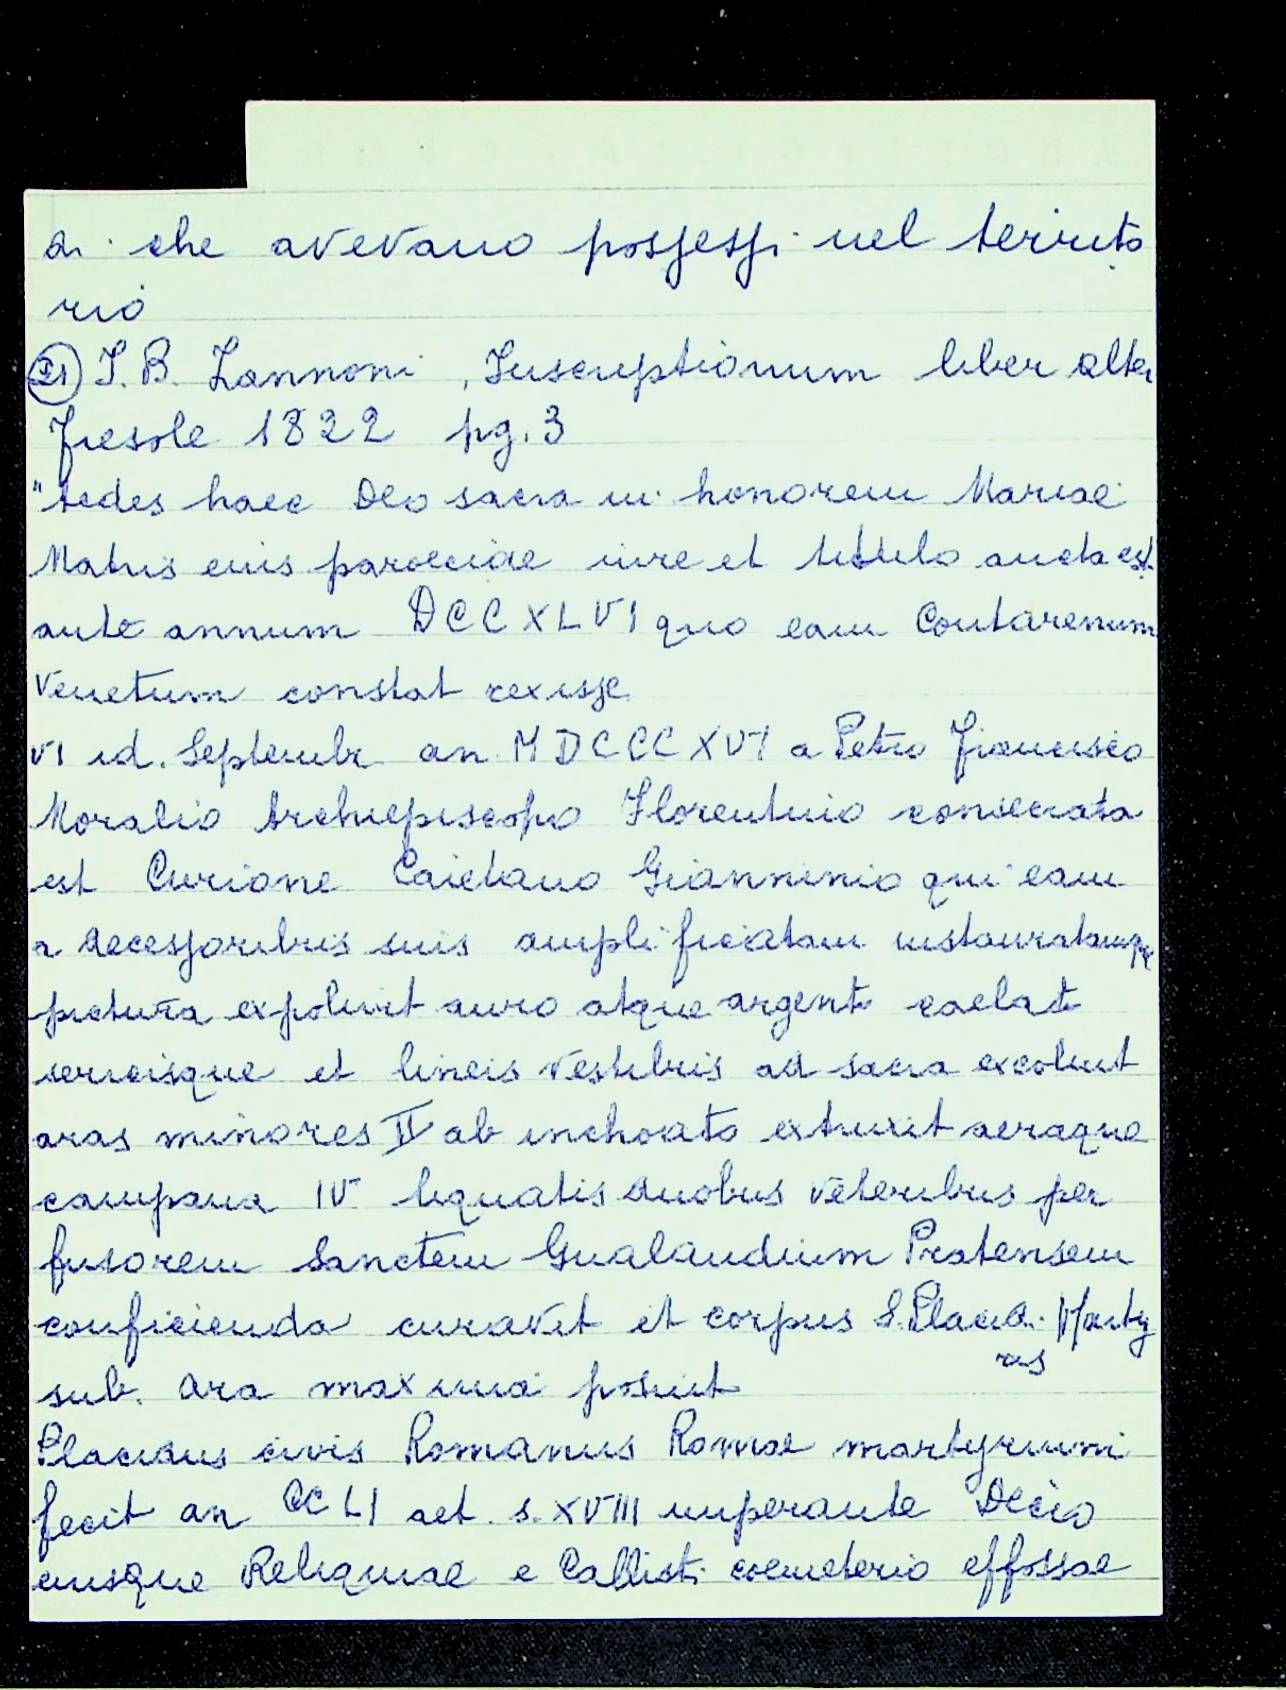 di che avevano possessi nel territo
rio
(21) J. B. Zannoni, Inscriptionum liber alter
Fiesole 1822 pg. 3
"Aedes haec Deo sacra in honorem Mariae
Matris eius paroeciae iure et titulo aucta est
ante annum DCCXLVI quo eam Contarenum
Venetum constat rexisse
VI id. Septembr an MDCCCXVI a Petro Francisco
Moralio Archiepiscopo Florentino consecrata
est Curione Caietano Gianninio qui eam
a decessoribus suis amplificatam instauratamque
pictura expolivit auro atque argento caelato
sericisque et lineis vestibus ad sacra excoluit
aras minores II ab inchoato extruxit aeraque
campana IV liquatis duobus veteribus per
fusorem Sanctem Gualandium Pratensem
conficienda curavit et corpus S. Placidi Marty
ris
sub. ara maxima posuit
Placidus civis Romanus Romae martyrium
fecit an CCLI aet. s. XVIII imperante Decio
eiusque Reliquiae e Callisti coemeterio effossae